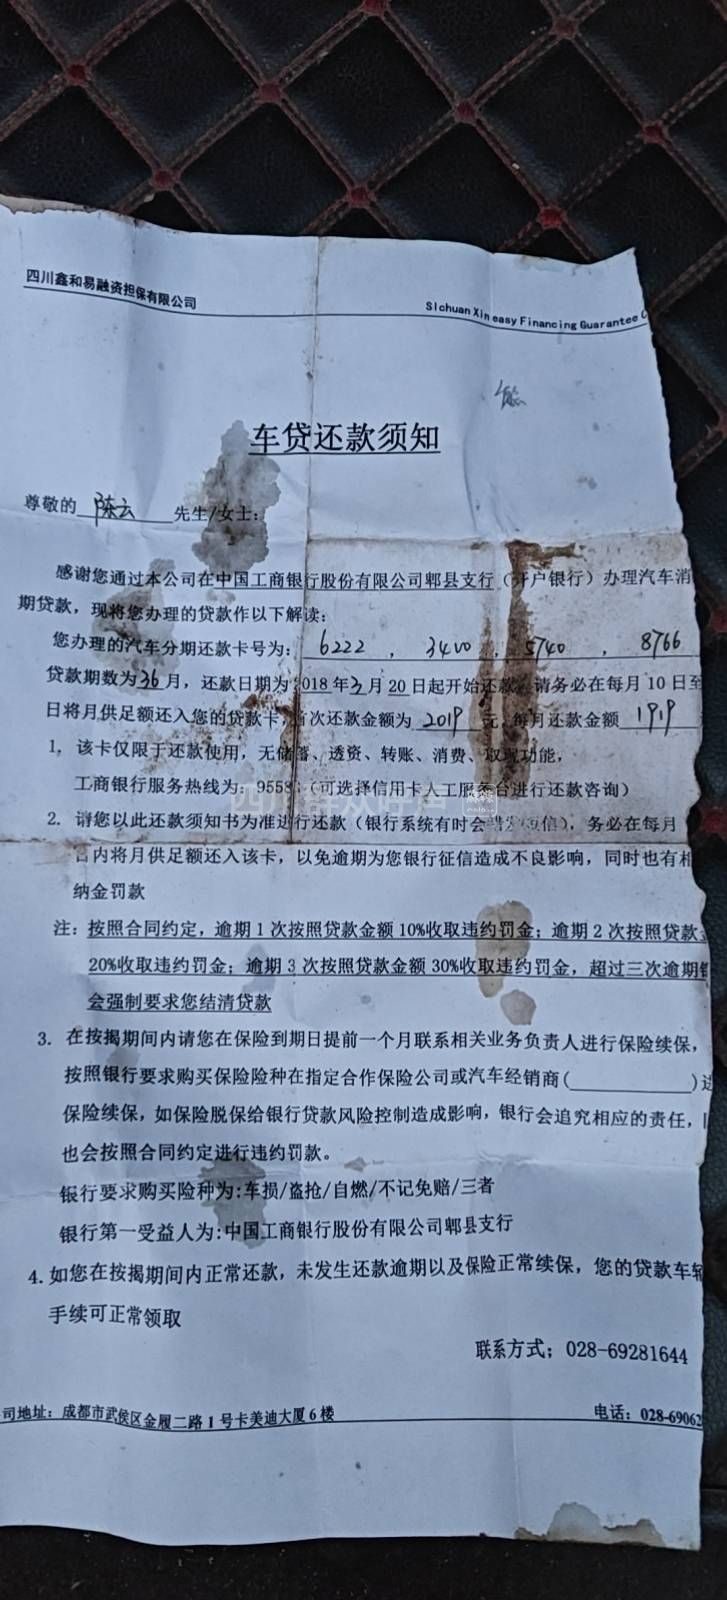 四川鑫和易融资担保有限公司
Sichuan Xin easy Financing Guarantee C
车贷还款须知
尊敬的 陈云 先生/女士：
感谢您通过本公司在中国工商银行股份有限公司郫县支行（开户银行）办理汽车消
期贷款，现将您办理的贷款作以下解读：
您办理的汽车分期还款卡号为： 6222 ， 3400 ， 5740 ， 8766
贷款期数为36月，还款日期为2018年3月20日起开始还款，请务必在每月10日至
日将月供足额还入您的贷款卡，首次还款金额为 2019 元，每月还款金额 1919
1， 该卡仅限于还款使用，无储蓄、透资、转账、消费、取现功能，
工商银行服务热线为：9558（可选择信用卡人工服务台进行还款咨询）
2. 请您以此还款须知书为准进行还款（银行系统有时会错发短信），务必在每月
日内将月供足额还入该卡，以免逾期为您银行征信造成不良影响，同时也有相
纳金罚款
注：按照合同约定，逾期1次按照贷款金额10%收取违约罚金；逾期2次按照贷款
20%收取违约罚金；逾期3次按照贷款金额30%收取违约罚金，超过三次逾期
会强制要求您结清贷款
3. 在按揭期间内请您在保险到期日提前一个月联系相关业务负责人进行保险续保，
按照银行要求购买保险险种在指定合作保险公司或汽车经销商(__________)进
保险续保，如保险脱保给银行贷款风险控制造成影响，银行会追究相应的责任，
也会按照合同约定进行违约罚款。
银行要求购买险种为:车损/盗抢/自燃/不记免赔/三者
银行第一受益人为:中国工商银行股份有限公司郫县支行
4. 如您在按揭期间内正常还款，未发生还款逾期以及保险正常续保，您的贷款车辆
手续可正常领取
联系方式；028-69281644
司地址：成都市武侯区金履二路1号卡美迪大厦6楼
电话：028-69062